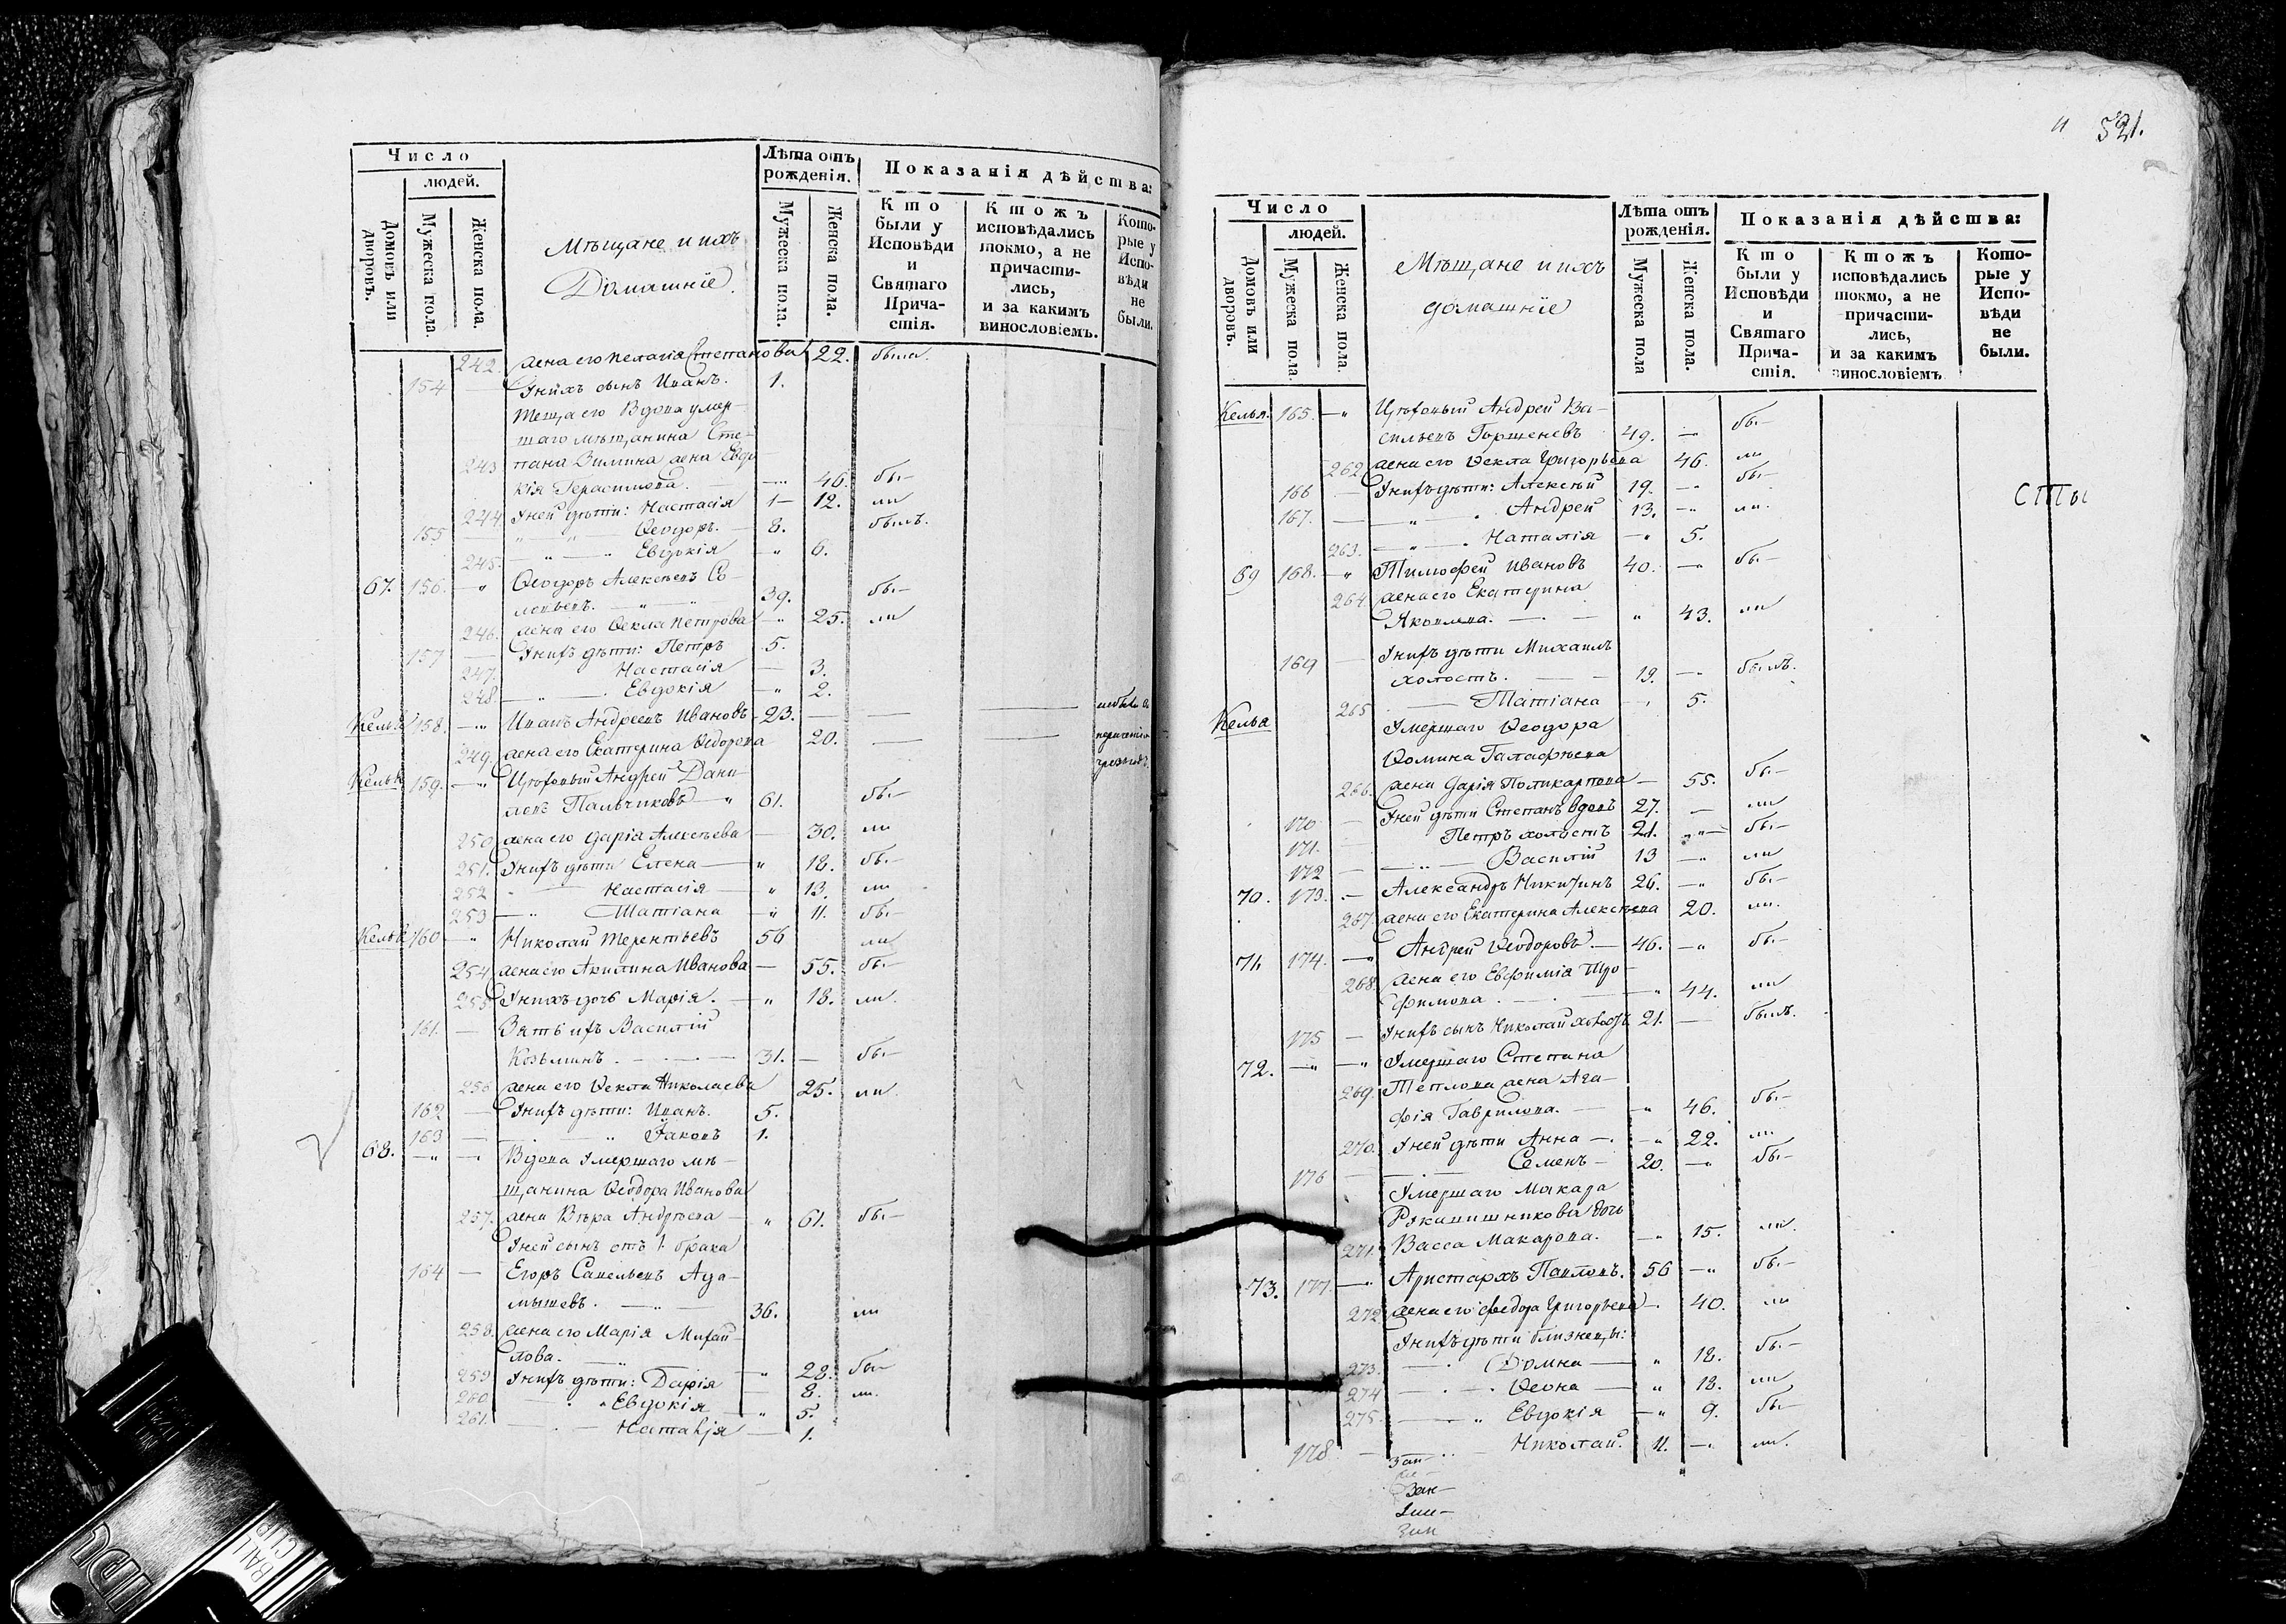 Число
людей.
Домовъ или дворовъ.
Мужеска пола.
Женска пола.
Мѣщане и ихъ
Домашнїе.
Лѣта отъ рожденія.
Мужеска пола.
Женска пола.
Показанія дѣйства:
Кто были у Исповѣди и Святаго Прича-стія.
Ктожъ исповѣдались токмо, а не причасти-лись, и за какимъ винословіемъ.
Кото-рые у Испо-вѣди не были.
242. жена его Пелагія Степанова 22. была.
154 — У нихъ сынъ Иванъ. 1.
теща его Вдова умер-
шаго мѣщанина Сте-
243 пана Зимина жена Евдо-
кія Герасимова. — 46. бы.—
244. У ней дѣти: Настасія 1— 12. ли
155 — " — Ѳеодоръ. — 8. былъ.
245. — " — " Евдокія — " 6.
67. 156. —" Ѳеодоръ Алексѣевъ Со-
ловьевъ. — " — 39. бы.—
246. жена его Ѳекла Петрова — " 25. ли
157 — У нихъ дѣти: Петръ 5.
247. Настасія — 3.
248. — " — . Евдокія — " 2.
Келья 158. —" Иванъ Андреевъ Ивановъ 23. — — —
249. жена его Екатерина Ѳедорова 20. — —
Келья 159. —" Цѣховый Андрей Дани-
ловъ Пальчиковъ — " 61. бы.—
250 жена его Дарія Алексѣева — 30. ли
251. У нихъ дѣти Елена — " 18. бы.—
252 — Настасія — " 13. ли
253 — " Татіана — " 11. бы.—
Келья 160 — " Николай Терентьевъ 56 ли
254 жена его Акилина Иванова — 55. бы.—
255 У нихъ дочь Марія. — " 18. ли.
161. — Зять ихъ Василій
Козьминъ . — . — . — 31. — бы.—
256 жена его Ѳекла Николаева 25. ли.
162 — У нихъ дѣти: Иванъ. 5.
163 — — " Іаковъ 1.
68. —"— — Вдова Умершаго мѣ—
щанина Ѳеодора Иванова
257. жена Вѣра Андрѣева — " 61. бы.—
У ней сынъ отъ 1. брака
164 — Егоръ Савельевъ Ада—
мышевъ. — " — 36. ли
258. жена его Марія Михай—
лова. — " — " 28. бы—
259 У нихъ дѣти: Дарія — 8. ли.
260 — . " Евдокія — " 5.
261. — . — Наталія — 1.
и 521.
Число
людей.
Домовъ или дворовъ.
Мужеска пола.
Женска пола.
Мѣщане и ихъ
домашнїе
Лѣта отъ рожденія.
Мужеска пола
Женска пола.
Показанія дѣйства:
Кто были у Исповѣди и Святаго Прича-стія.
Ктожъ исповѣдались токмо, а не причасти-лись, и за какимъ винословіемъ
Кото-рые у Испо-вѣди не были.
Келья. 165. —" Цѣховый Андрей Ва—
сильевъ Горшеневъ 49. — бы.—
262 жена его Ѳекла Григорьева 46. ли
166 — У нихъ дѣти: Алексѣй 19. — " бы.—
167. — — " — . Андрей 13. — " ли.
263. — " — . Наталія — " 5.
69 168. —" Тимофей Ивановъ 40. — " бы.—
264. жена его Екатерина
Яковлева. — . — " 43. ли
169 — У нихъ дѣти Михаилъ
холостъ. — 19. — былъ.
265. — Татіана — . 5.
Келья Умершаго Ѳеодора
Ѳомина Галафѣева
266. жена Дарія Поликарпова — 55. бы.—
170 — У ней дѣти Степанъ вдовъ 27. — ли
171. — Петръ холостъ 21. " — бы.—
172 — — " — Василій 13 — " ли
70. 173. — Александръ Никитинъ 26. — " бы.—
267. жена его Екатерина Алексѣева 20. ли.
71. 174. —" Андрей Ѳеодоровъ. — 46. — " бы.—
268. жена его Евфимія Тро—
фимова . — . — " 44. ли
175 — У нихъ сынъ Николай холостъ 21. — былъ.
72. —" —" Умершаго Степана
269. Теплова жена Ага—
фія Гаврилова. — — " 46. бы.—
270. У ней дѣти Анна — . — " 22. ли
176 — — . — Семенъ — 20. — " бы.—
Умершаго Макара
дочь
271. Васса Макарова. — " 15. ли.
73. 177. —" Аристархъ Павловъ. 56 — " бы.—
272. жена его Ѳедора Григорьева — . 40. ли
У нихъ дѣти близнецы:
273. — . Домна — " 18. бы.—
274 — . — . Ѳеона — " 18. ли
275. — . — " Евдокія — " 9. бы.—
178. — — . . — Николай. 11. — . ли.